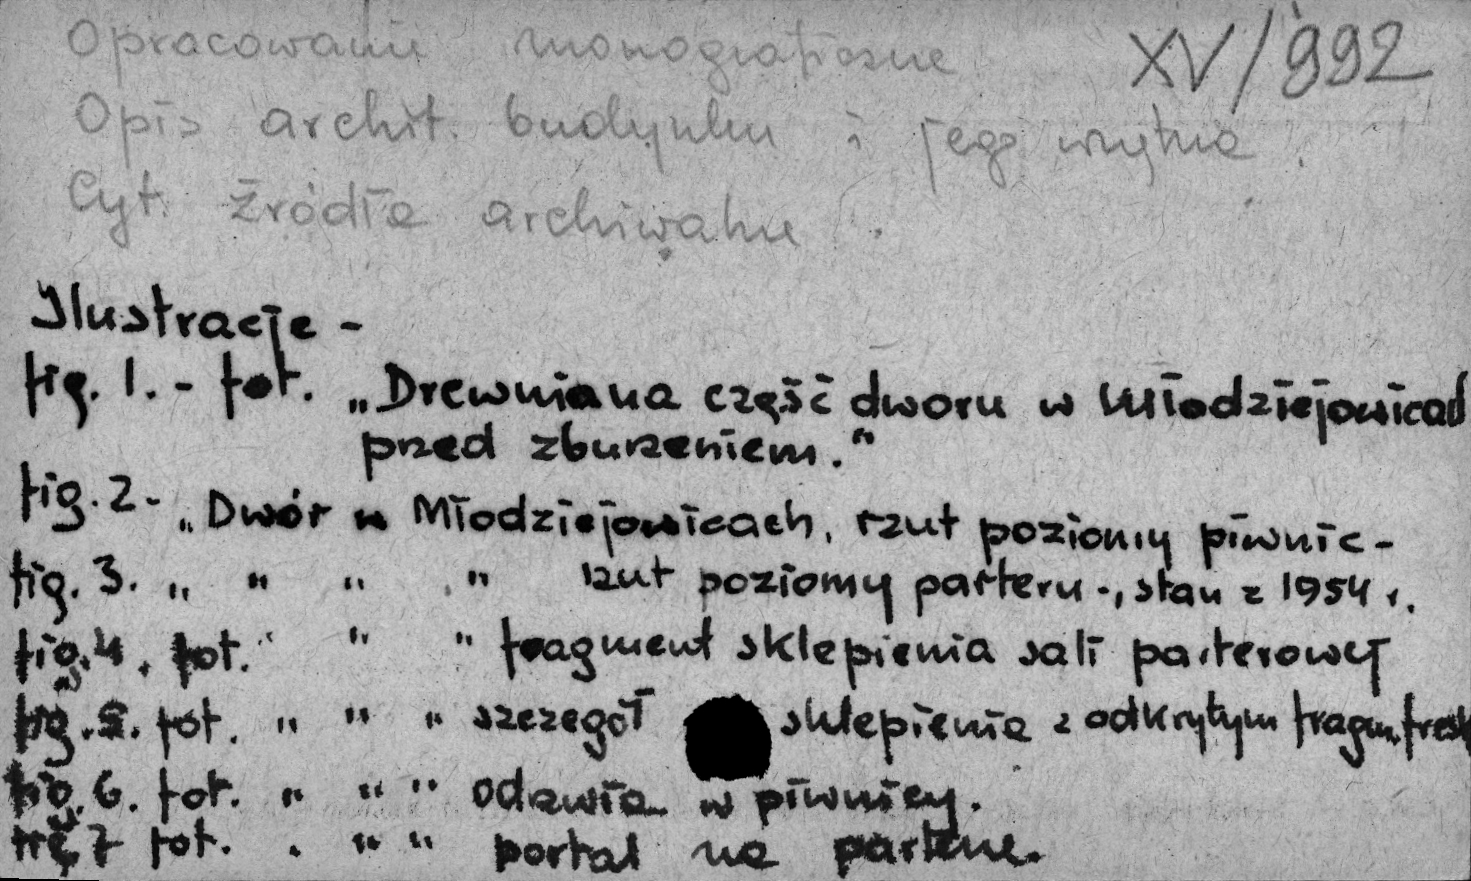 XV/992
Opracowanie monograficzne
Opis archit. budynku i jego wnętrza.
Cyt. źródła archiwalne.
Ilustracje -
fig. 1. - fot. „Drewniana część dworu w Młodziejowicach
przed zburzeniem."
fig. 2 - „Dwór w Młodziejowicach, rzut poziomy piwnic -
fig. 3. „ " " " rzut poziomy parteru -, stan z 1954 r.
fig. 4. fot. " " " fragment sklepienia sali parterowej
fig. 5. fot. " " " szczegół sklepienia z odkrytym fragm. fresk
fig. 6. fot. " " " odrzwia w piwnicy.
fig. 7 fot. . " " portal na parterze.